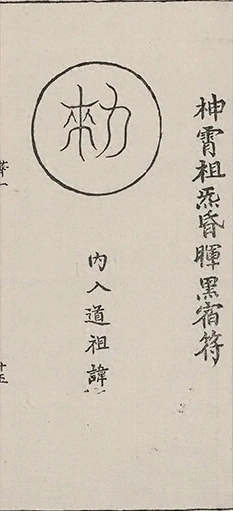 神霄祖炁昏暉黑宿符
勑
内入道祖諱